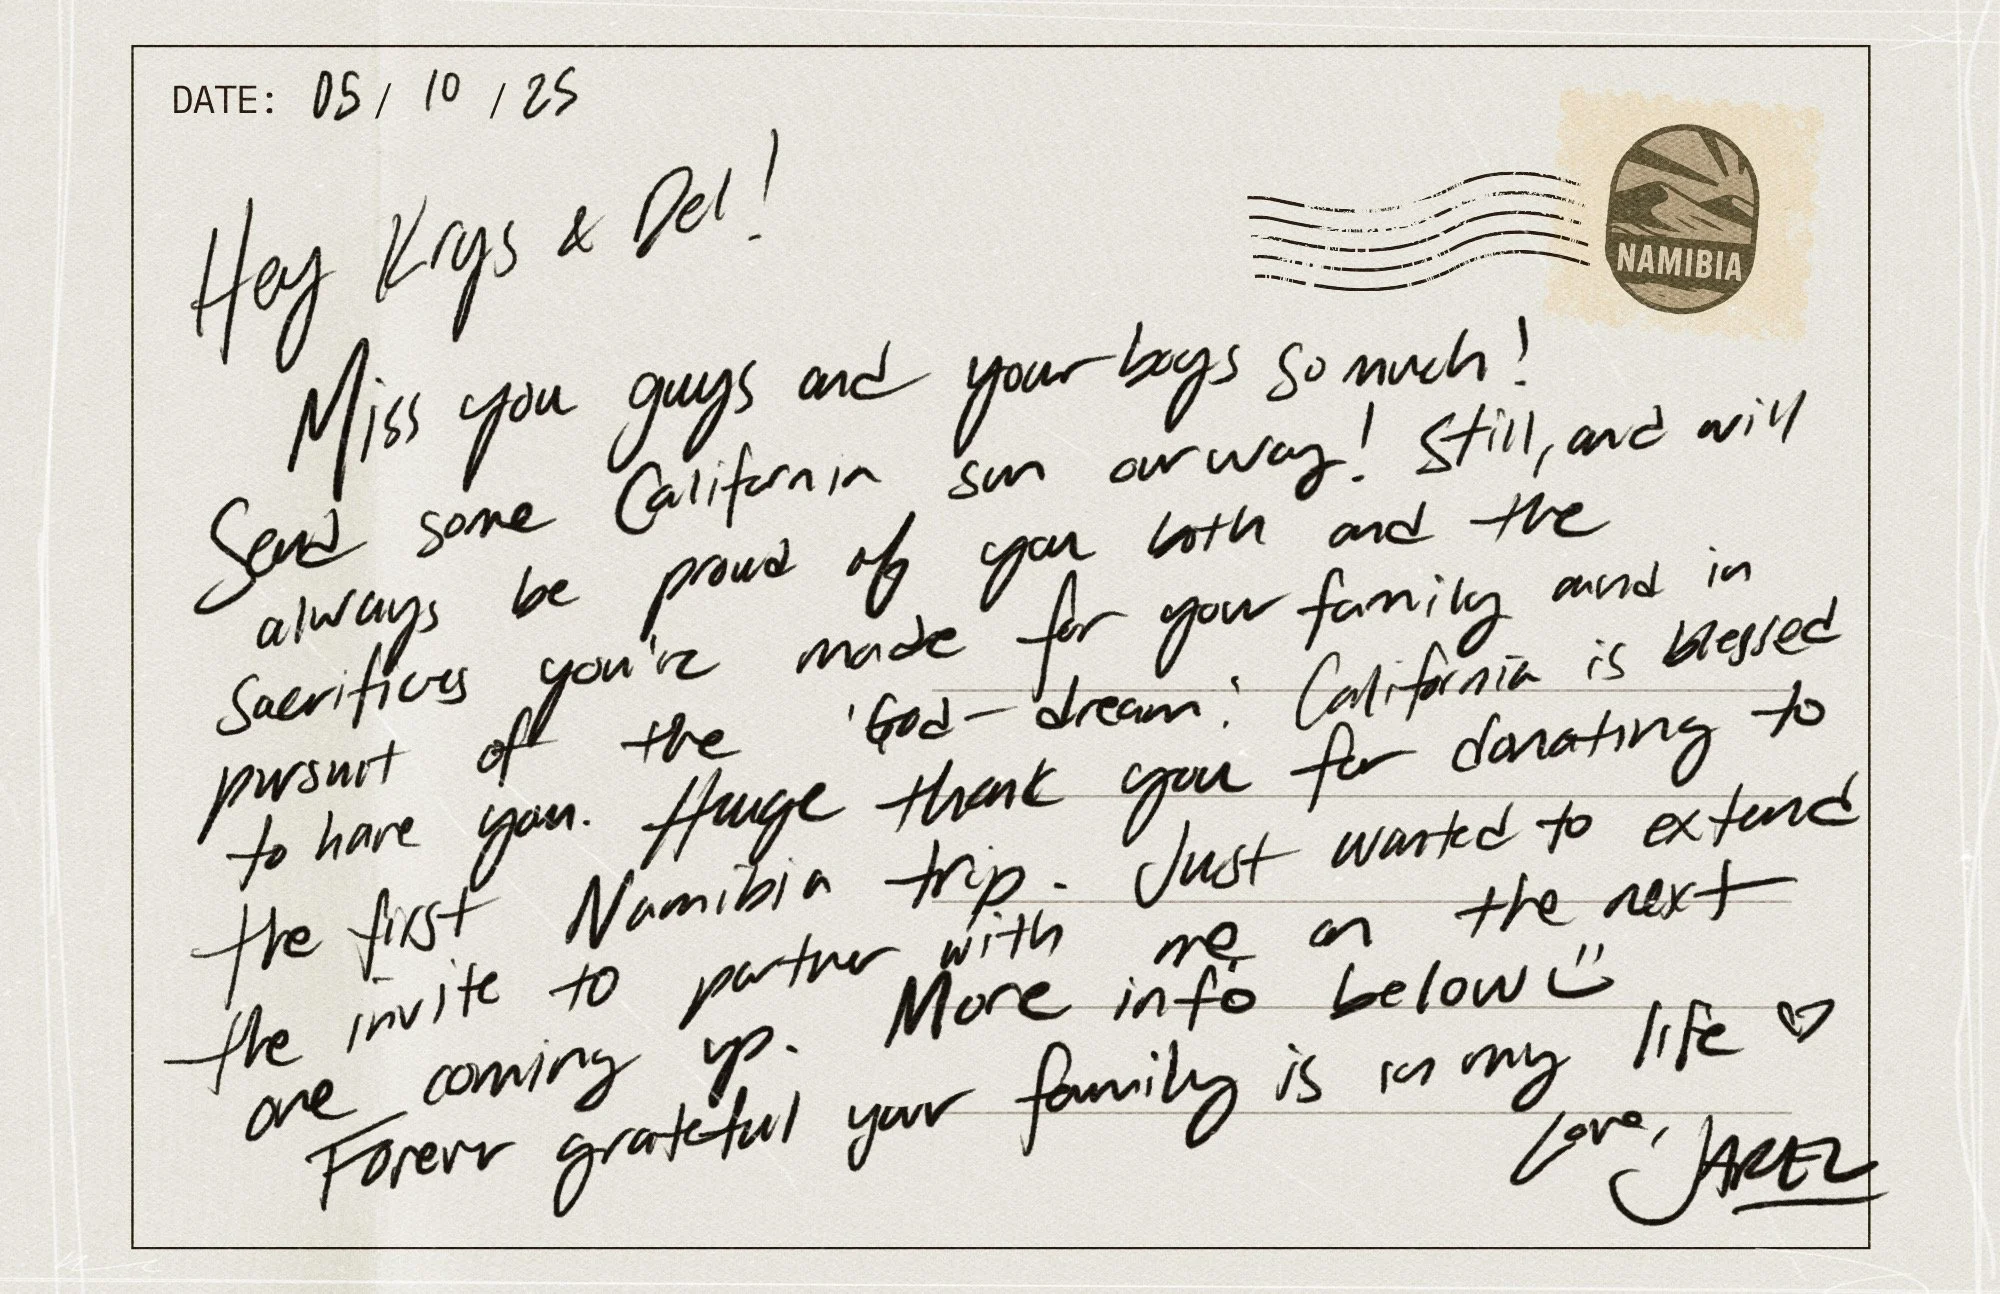 DATE: 05 / 10 / 25
NAMIBIA
Hey Krys & Del!
Miss you guys and your boys so much!
Send some California sun our way! Still, and will
always be proud of you both and the
sacrifices you've made for your family and in
pursuit of the 'God-dream'. California is blessed
to have you. Huge thank you for donating to
the first Namibia trip. Just wanted to extend
the invite to partner with me on the next
one coming up. More info below
Forever grateful your family is in my life ♡
Love,
JAREZ